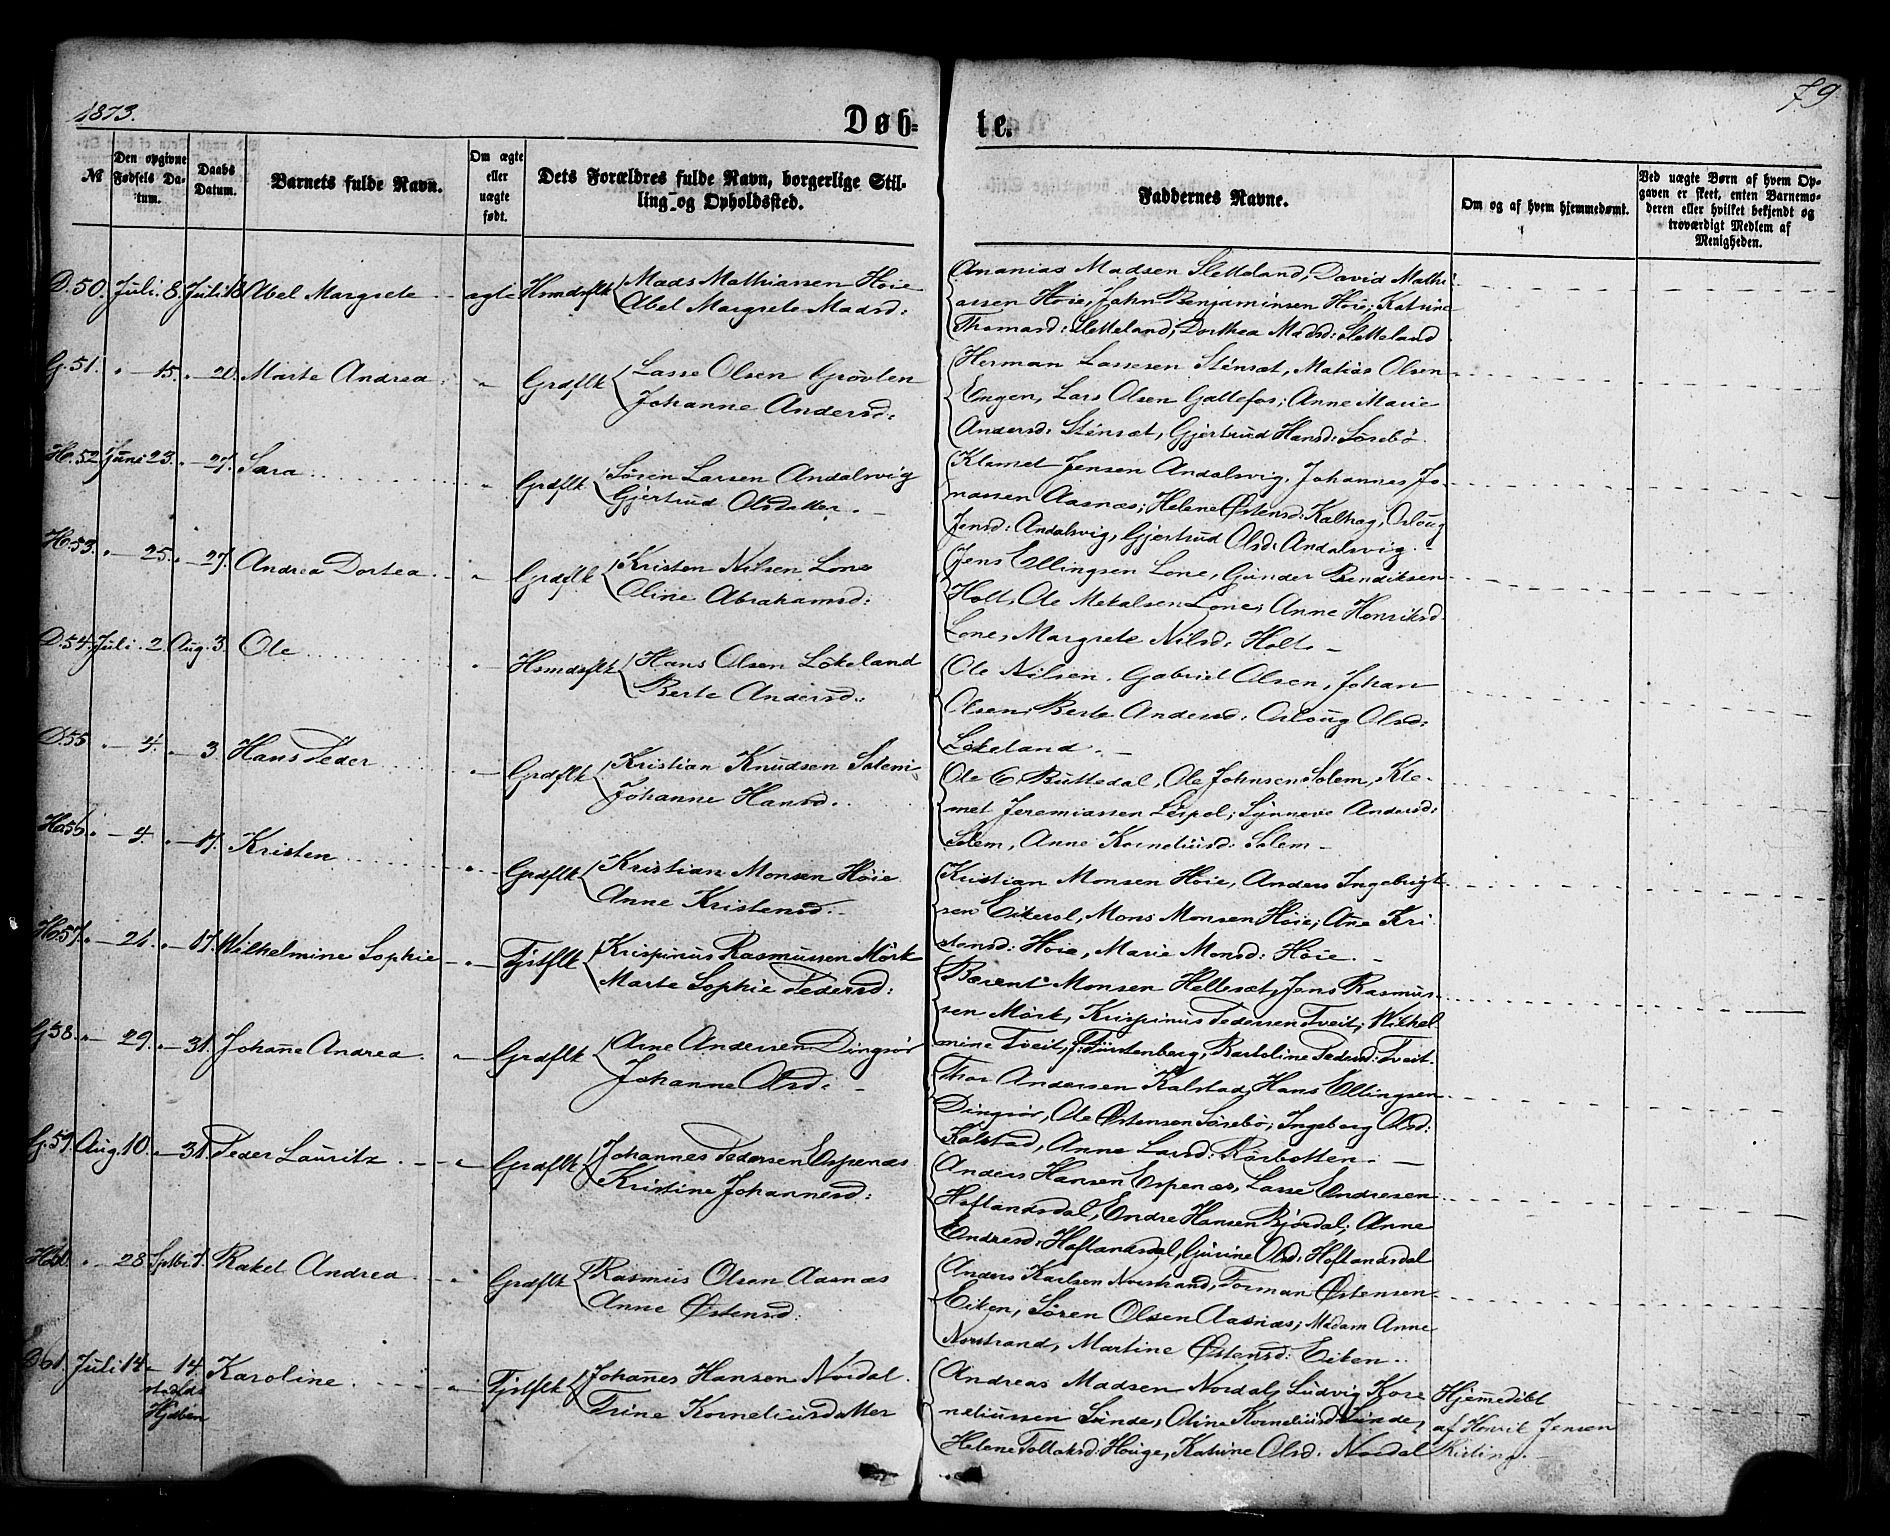 1873.
79
Døb-
te.
№
Den opgivne Fødsels Da-tum.
Daabs Datum.
Barnets fulde Navn.
Om ægte eller uægte født.
Dets Forældres fulde Navn, borgerlige Stil-
ling og Opholdssted.
Faddernes Navne.
Om og af hvem hjemmedømt.
Ved uægte Børn af hvem Op-
gaven er skeet, enten Barnemo-
deren eller hvilket bekjendt og
troværdigt Medlem af
Menigheden.
D.50. Juli. 8. Juli 18. Abel Margrete ægte Hsmdsflk Mads Mathiassen Høie
Abel Margrete Madsd:
Ananias Madsen Sletteland, David Mathi
assen Høie, John Benjaminsen Høie; Katrine
Thomasd: Sletteland, Dorthea Madsd: Sletteland
G.51. " 15. " 20. Marte Andrea " Grdflk Lasse Olsen Grøvlen
Johanne Andersd:
Herman Lassesen Stensæt, Matias Olsen
Engen, Lars Olsen Gallefos; Anne Marie
Andersd: Stensæt, Gjertrud Hansd: Sørebø
H.52. Juni 23. " 27. Sara " Grdflk Søren Larsen Andalsvig
Gjertrud Olsdatter.
Klemet Jensen Andalsvig, Johannes Jo-
nassen Aasnæs; Helene Østensd: Kalhag, Orloug
Jensd: Andalsvig, Gjertrud Olsd: Andalsvig.
H.53. " 25. " 27. Andrea Dortea " Grdflk Kristen Nilsen Lone
Oline Abrahamsd:
Jens Ellingsen Lone, Gunder Bendiksen
Holt, Ole Mekalsen Lone; Anne Henriksd.
Lone, Margrete Nilsd: Holt.
D.54. Juli. 2. Aug. 3. Ole " Hsmdsflk Hans Olsen Løkeland
Berte Andersd:
Ole Nilsen, Gabriel Olsen, Johan
Olsen; Berte Andersd: Orloug Olsd:
Løkeland.
D.55 " 4. " 3 Hans Peder " Grdflk Kristian Knudsen Solem
Johanne Hansd.
Ole C. Buttedal, Ole Johnsen Solem, Kle-
met Jeremiassen Lespol; Synneve Andersd:
Solem, Anne Korneliusd: Solem
H.56. " 4. " 17. Kristen " Grdflk Kristian Monsen Høie
Anne Kristensd.
Kristian Monsen Høie, Anders Ingebrigt-
sen Eikerol, Mons Monsen Høie; Ane Kri
stensd: Høie, Marie Monsd: Høie.
H.57. " 21. " 17. Wilhelmine Sophie " Tjstflk Krispinus Rasmussen Mørk
Marte Sophie Pedersd:
Bærent Monsen Hellesæt, Jens Rasmus-
sen Mørk, Krispinus Pedersen Tveit; Wilhel-
mine Tveit, f: Fürstenberg, Bartoline Pedersd: Tveit.
G.58. " 29. " 31. Johañe Andrea " Grdflk Arne Andersen Dingsør
Johanne Olsd.
Thor Andersen Kalstad, Hans Ellingsen
Dingsør, Ole Østensen Sørebø; Ingeborg Olsd:
Kalstad, Anne Larsd: Rørbotten.
G.59. Aug. 10. " 31. Peder Lauritz " Grdflk Johannes Pedersen Espenæs
Kristine Johannesd:
Anders Hansen Espenæs, Lasse Endresen
Hoflandsdal, Endre Hansen Bjordal; Anne
Endresd: Hoflandsdal, Gurine Olsd: Hoflandsdal
H.60. " 28 Septbr 7. Rakel Andrea " Grdflk Rasmus Olsen Aasnæs
Anne Østensd:
Anders Karlsen Norstrand, Torman Østensen
Eiken, Søren Olsen Aasnæs; Madam Anne
Norstrand, Martine Østensd: Eiken.
D.61. Juli 14 " 14. Karoline " Tjstflk Johañes Hansen Nordal
stadfæs
Hjæben
Trine Korneliusdatter
Andreas Madsen Nordal, Ludvig Kor
neliussen Sunde; Oline Korneliusd: Sunde,
Helene Tollaksd: Houge, Katrine Olsd: Nordal
Hjemmedøbt
af Henrik Jensen
Risting.